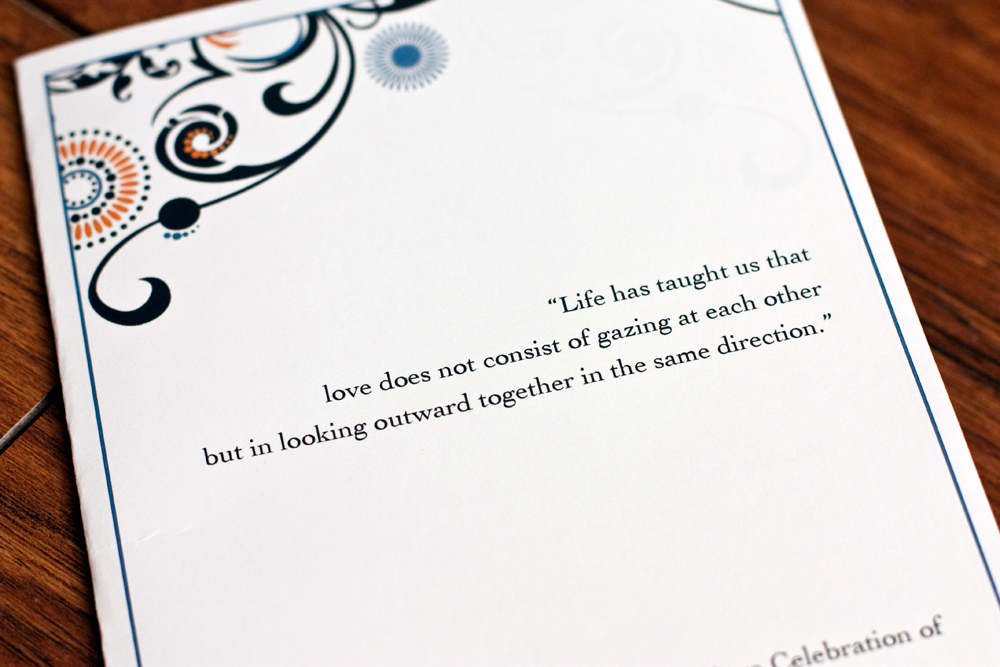 “Life has taught us that
love does not consist of gazing at each other
but in looking outward together in the same direction.”
Celebration of